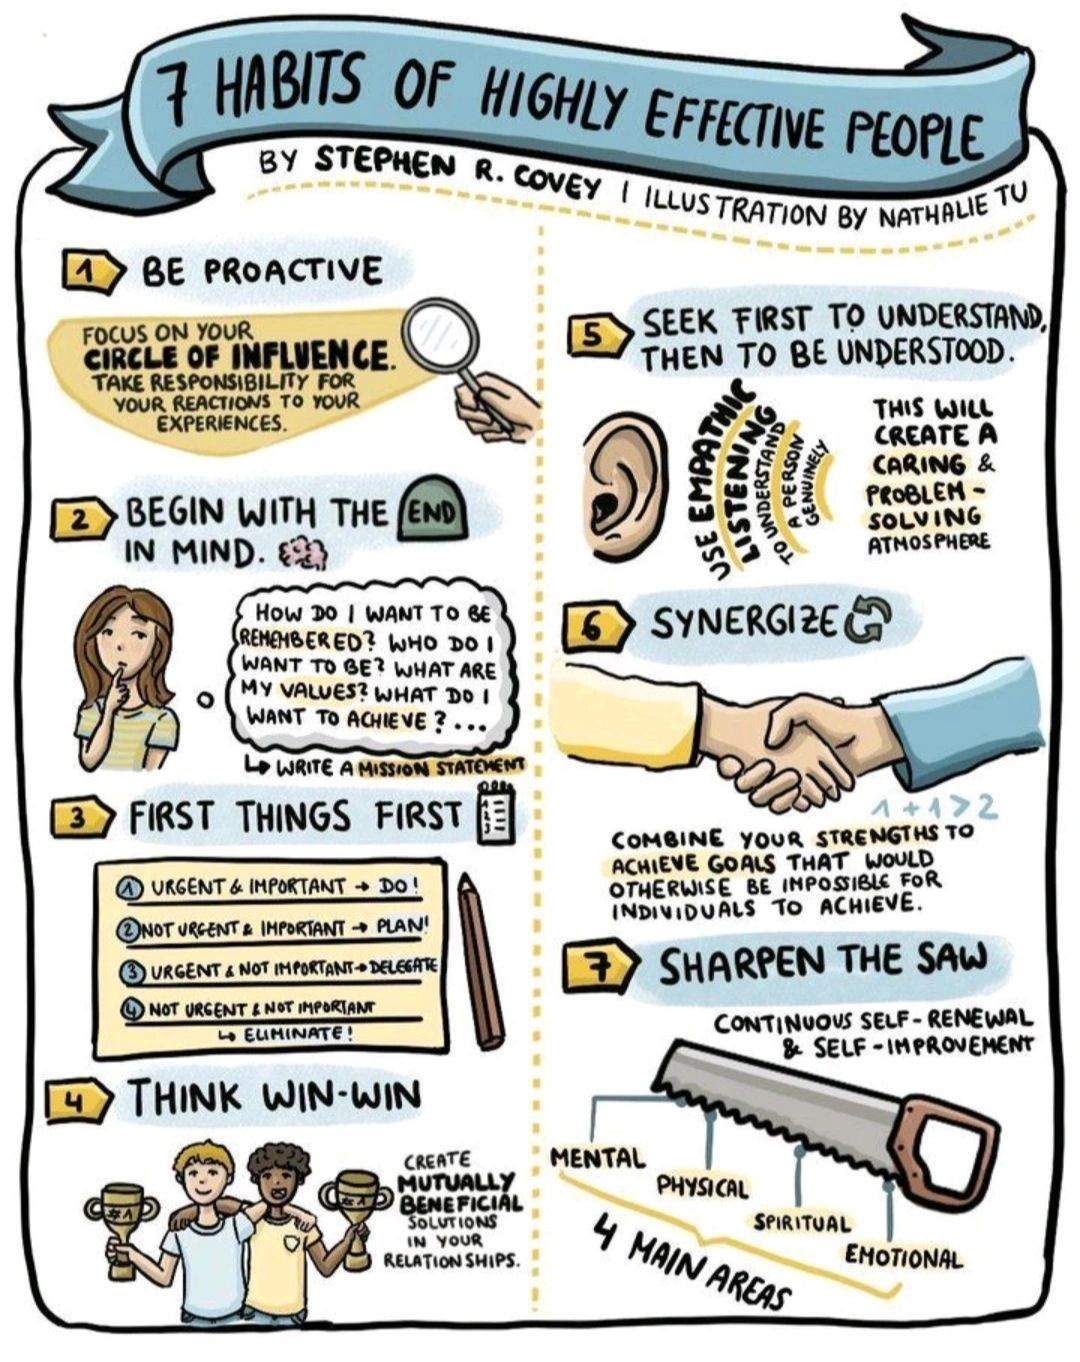 7 HABITS OF HIGHLY EFFECTIVE PEOPLE
BY STEPHEN R. COVEY | ILLUSTRATION BY NATHALIE TU
1 BE PROACTIVE
FOCUS ON YOUR
CIRCLE OF INFLUENCE.
TAKE RESPONSIBILITY FOR
YOUR REACTIONS TO YOUR
EXPERIENCES.
2 BEGIN WITH THE END
IN MIND.
HOW DO I WANT TO BE
REMEMBERED? WHO DO I
WANT TO BE? WHAT ARE
MY VALUES? WHAT DO I
WANT TO ACHIEVE ?...
↳ WRITE A MISSION STATEMENT
3 FIRST THINGS FIRST
1
2
3
1 URGENT & IMPORTANT → DO!
2 NOT URGENT & IMPORTANT → PLAN!
3 URGENT & NOT IMPORTANT → DELEGATE
4 NOT URGENT & NOT IMPORTANT
↳ ELIMINATE!
4 THINK WIN-WIN
#1
#1
CREATE
MUTUALLY
BENEFICIAL
SOLUTIONS
IN YOUR
RELATIONSHIPS.
5 SEEK FIRST TO UNDERSTAND,
THEN TO BE UNDERSTOOD.
USE EMPATHIC
LISTENING
TO UNDERSTAND
A PERSON
GENUINELY
THIS WILL
CREATE A
CARING &
PROBLEM-
SOLVING
ATMOSPHERE
6 SYNERGIZE
1+1>2
COMBINE YOUR STRENGTHS TO
ACHIEVE GOALS THAT WOULD
OTHERWISE BE IMPOSSIBLE FOR
INDIVIDUALS TO ACHIEVE.
7 SHARPEN THE SAW
CONTINUOUS SELF-RENEWAL
& SELF-IMPROVEMENT
MENTAL
PHYSICAL
SPIRITUAL
EMOTIONAL
4 MAIN AREAS